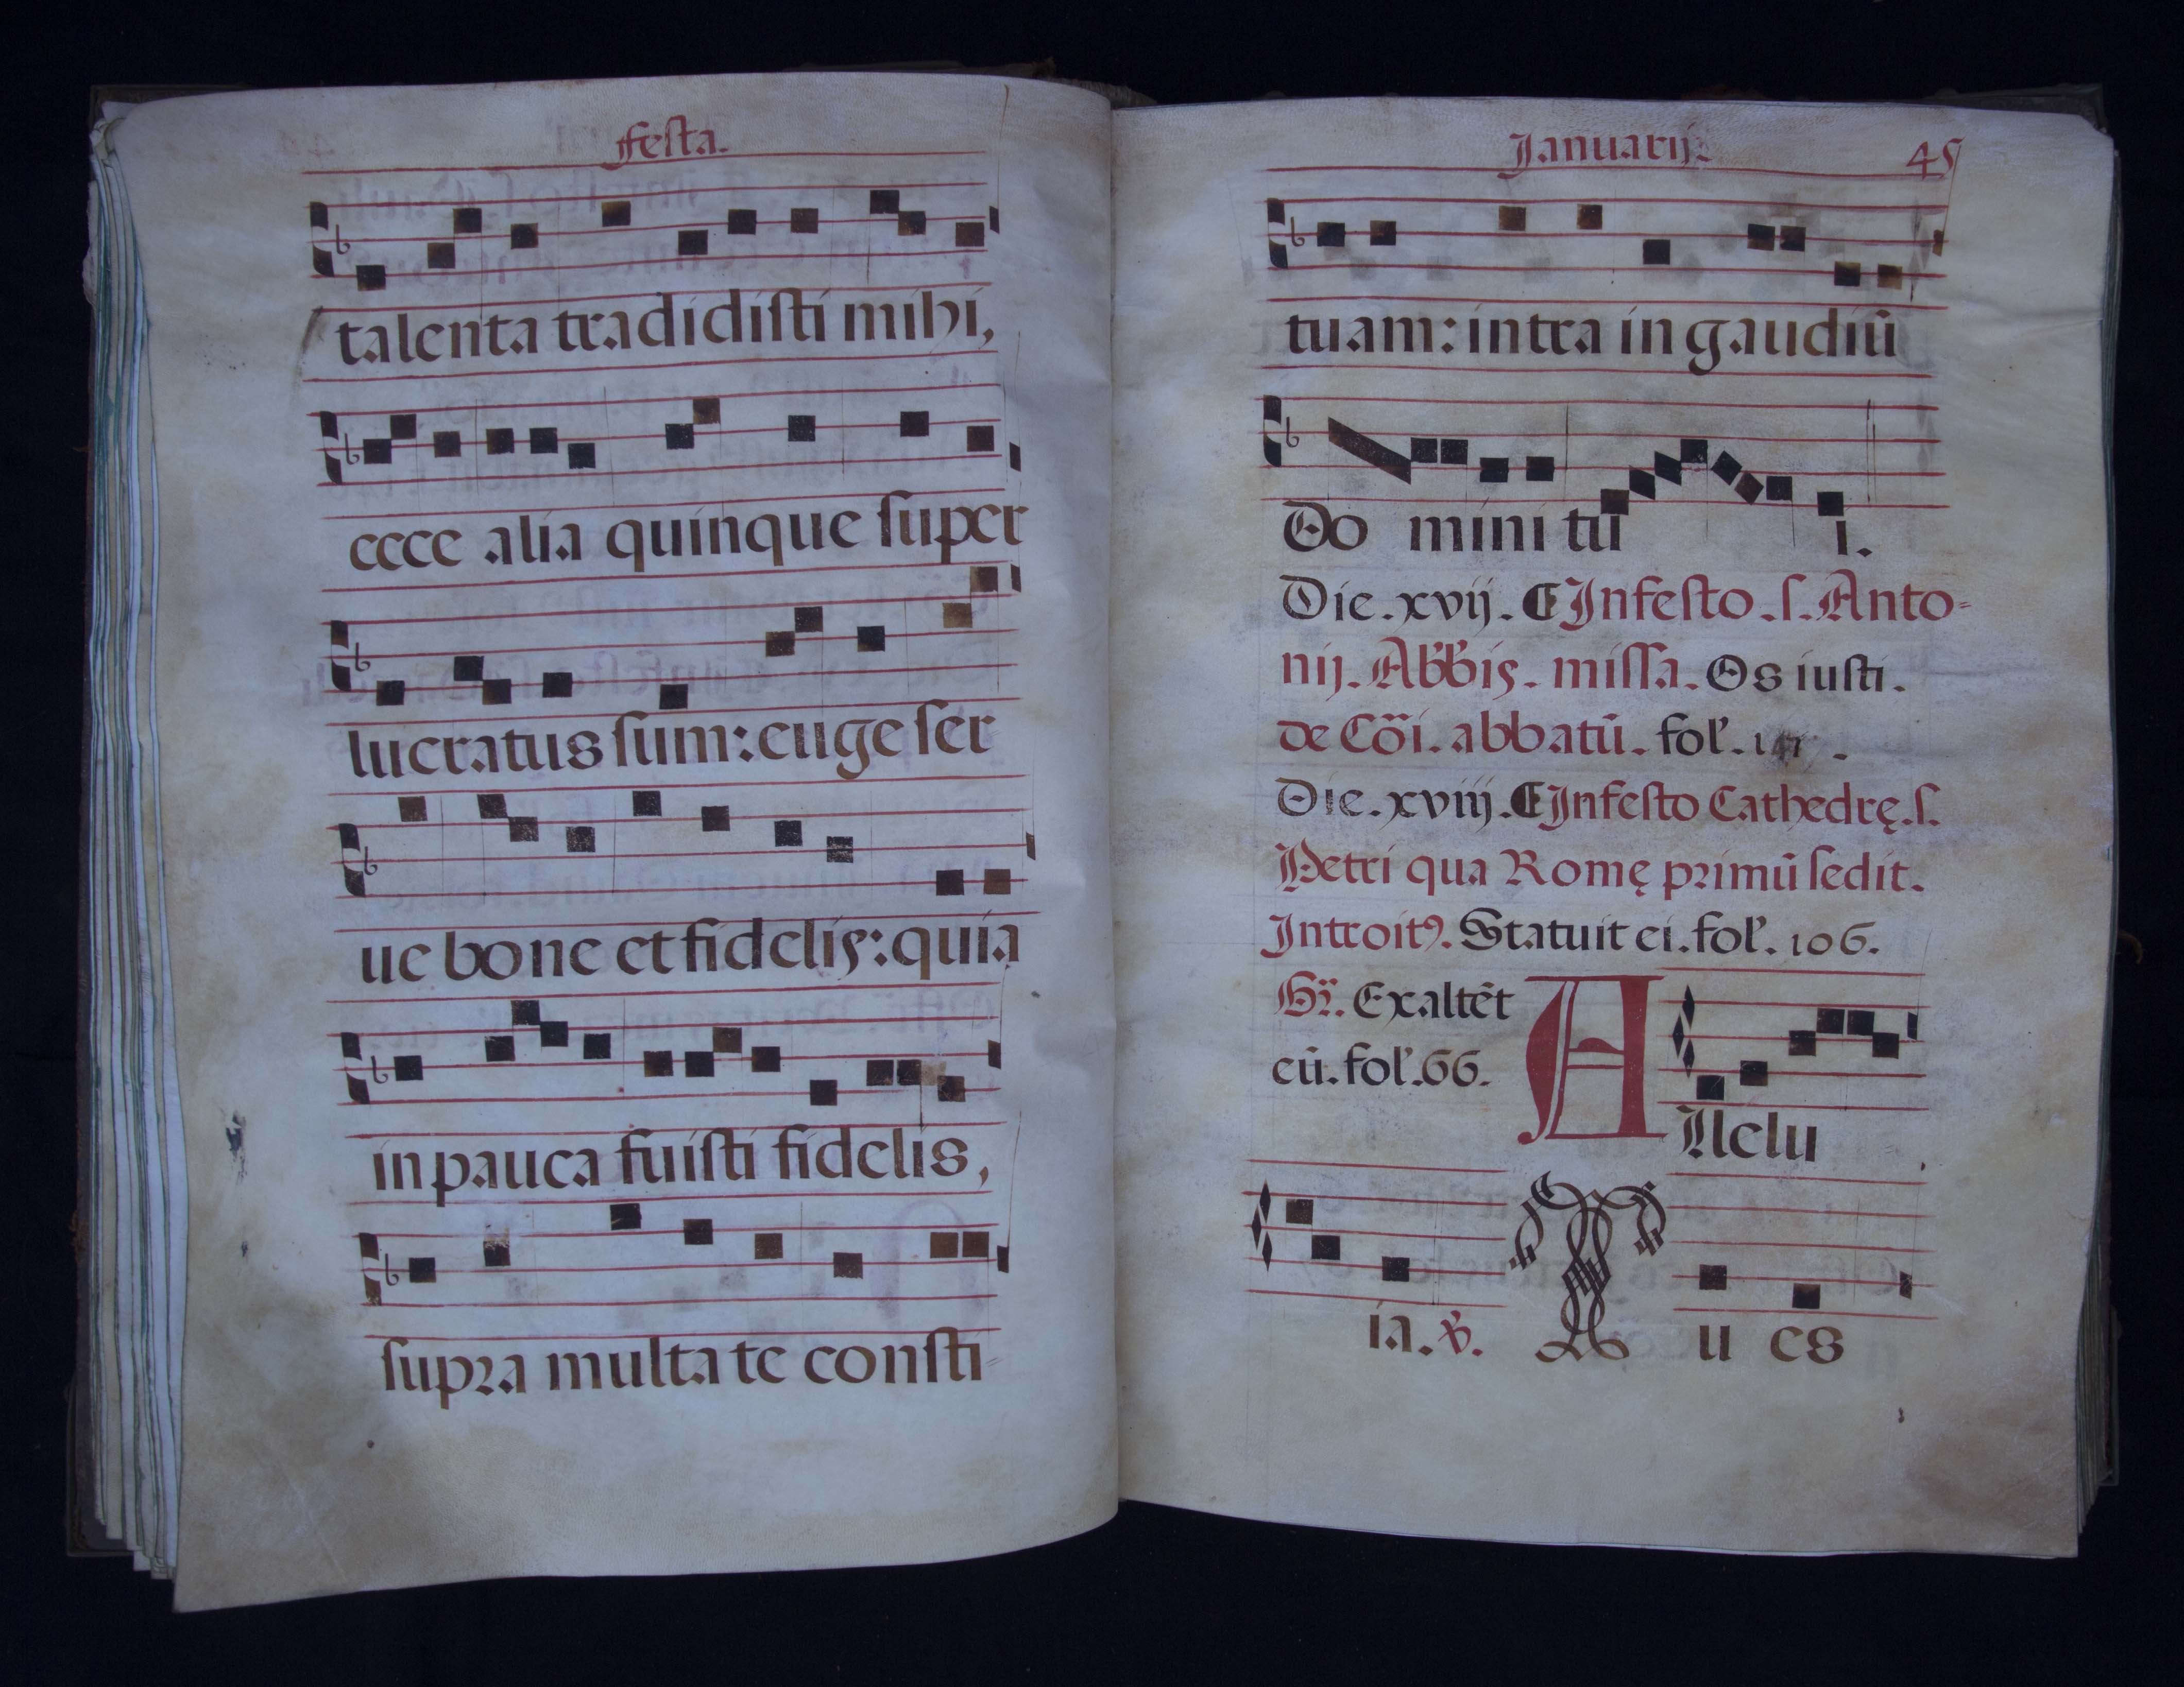 Festa.
talenta tradidisti mihi,
ecce alia quinque super
lucratus sum: euge ser
ue bone et fidelis: quia
in pauca fuisti fidelis,
supra multa te consti-
Januarij.
45
tuam: intra in gaudiū
Do mini tu i.
Die. xvij. ¶ In festo. s. Anto-
nij. Abb̄is. missa. Os iusti.
de Cōi. abbatū. fol'.
Die. xviij. ¶ In festo Cathedrę. s.
Petri qua Romę primū sedit.
Introitꝰ. Statuit ei. fol'. 106.
Gr̄. Exaltēt
eū. fol'. 66.
Allelu
ia. ℣. Tu es